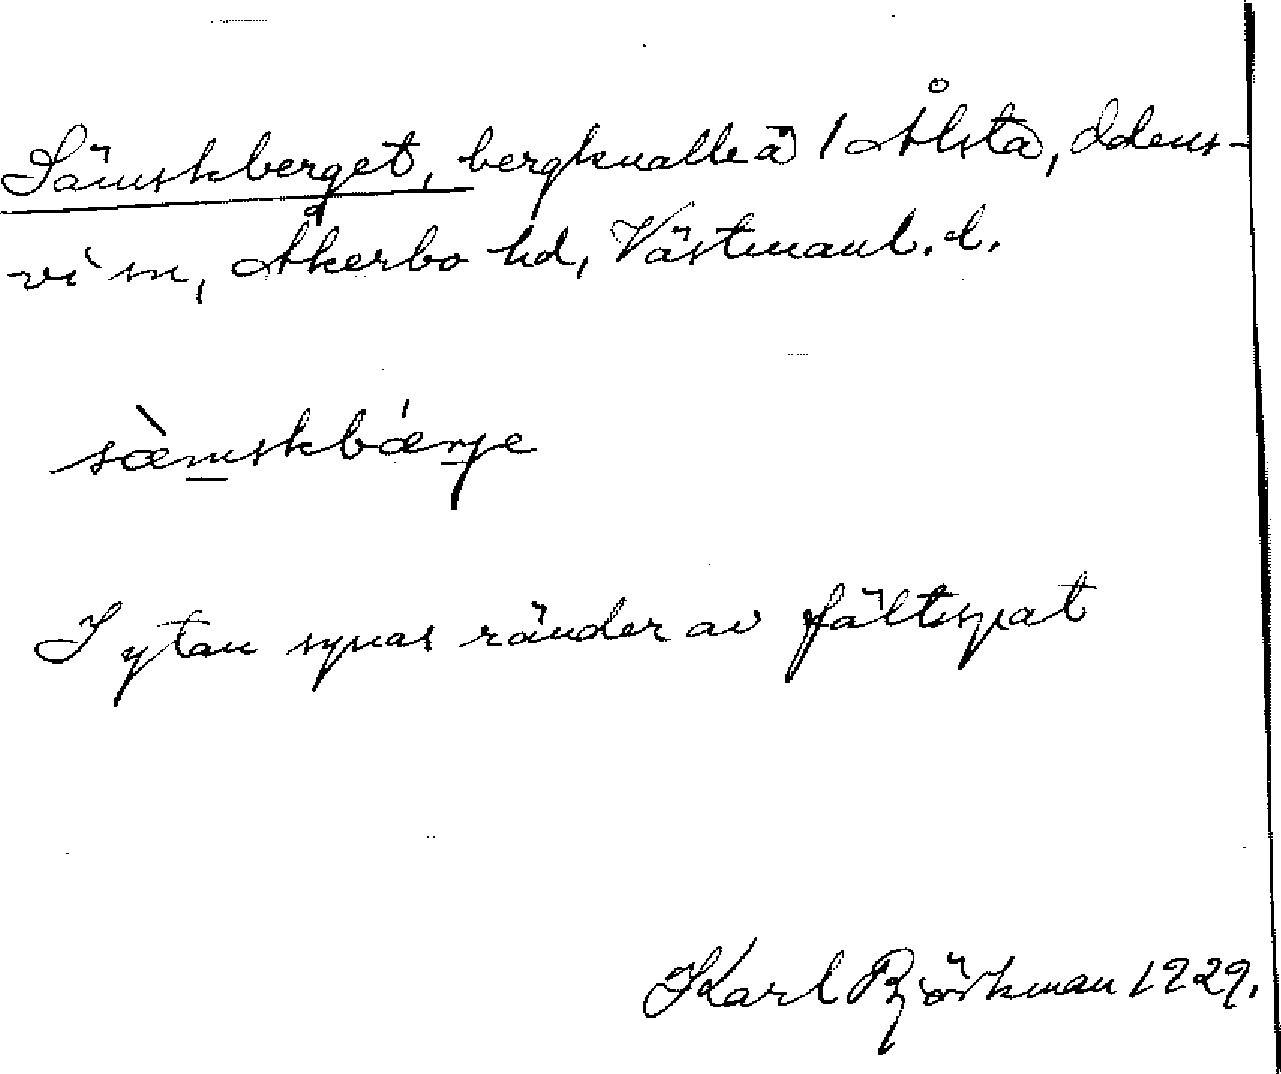 Sämskberget, bergknalle å 1 Ålsta, Odens-
vi sn, Åkerbo hd, Västmanl. l.
sæ̀mskbǽrje
I ytan synas ränder av fältspat
Karl Björkman 1929.